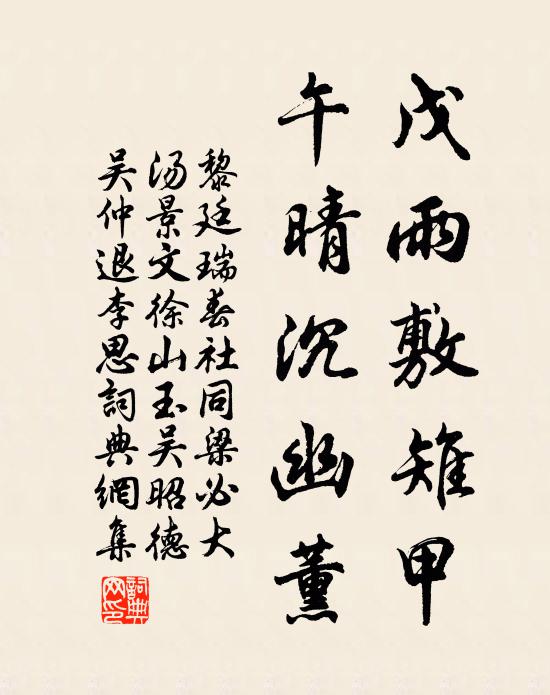 戊雨敷雉甲
午晴沉幽薰
黎廷瑞春社同梁必大
汤景文徐山玉吴昭德
吴仲退李思詞典網集
詞典網印